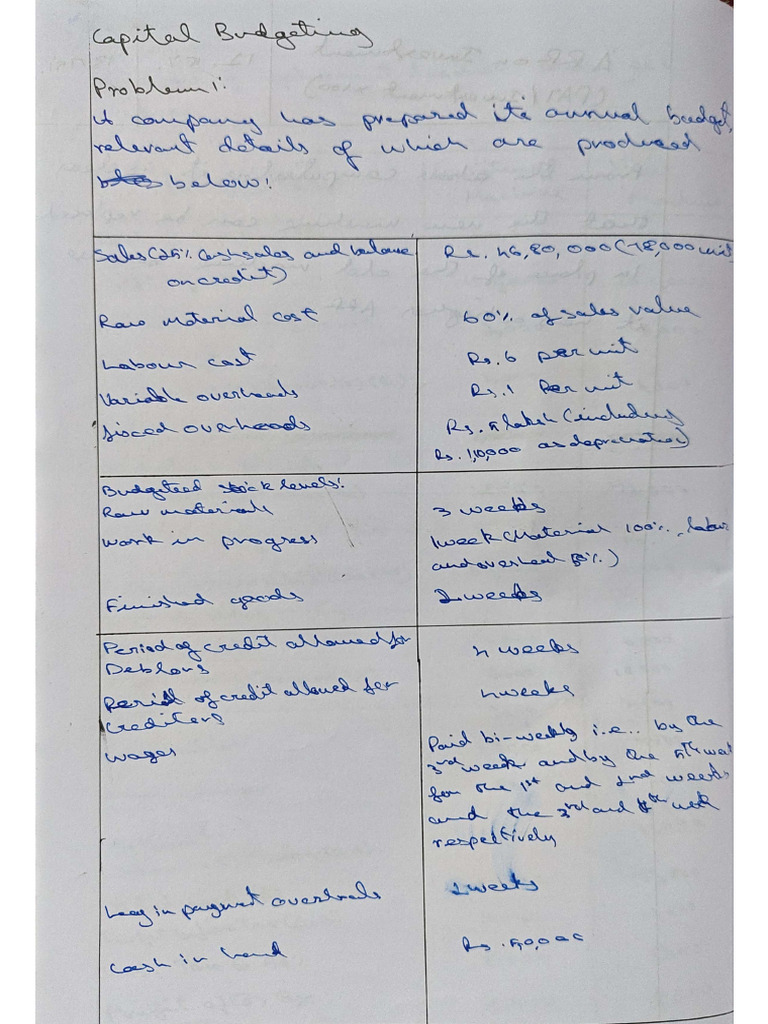 Capital Budgeting
Problem 1:
A company has prepared its annual budget,
relevant details of which are produced
below:
Sales (25% Cash sales and balance Rs. 46,80,000 (78,000 units
on credit)
Raw Material cost 60% of sales value
Labour cost Rs. 6 per unit
Variable overheads Rs. 1 Per unit
fixed overheads Rs. 5 lakh (including
Rs. 1,10,000 as depreciation)
Budgeted stock levels:
Raw materials 3 weeks
Work in progress 1 week (Material 100%, labour
and overhead 50%)
Finished goods 2 weeks
Period of credit allowed for 4 weeks
Debtors
Period of credit allowed for 4 weeks
Creditors
Wages Paid bi-weekly i.e.. by the
3rd week and by the 5th week
for the 1st and 2nd weeks
and the 3rd and 4th week
respectively
Lag in payment overheads 2 weeks
Cash in hand Rs. 50,000